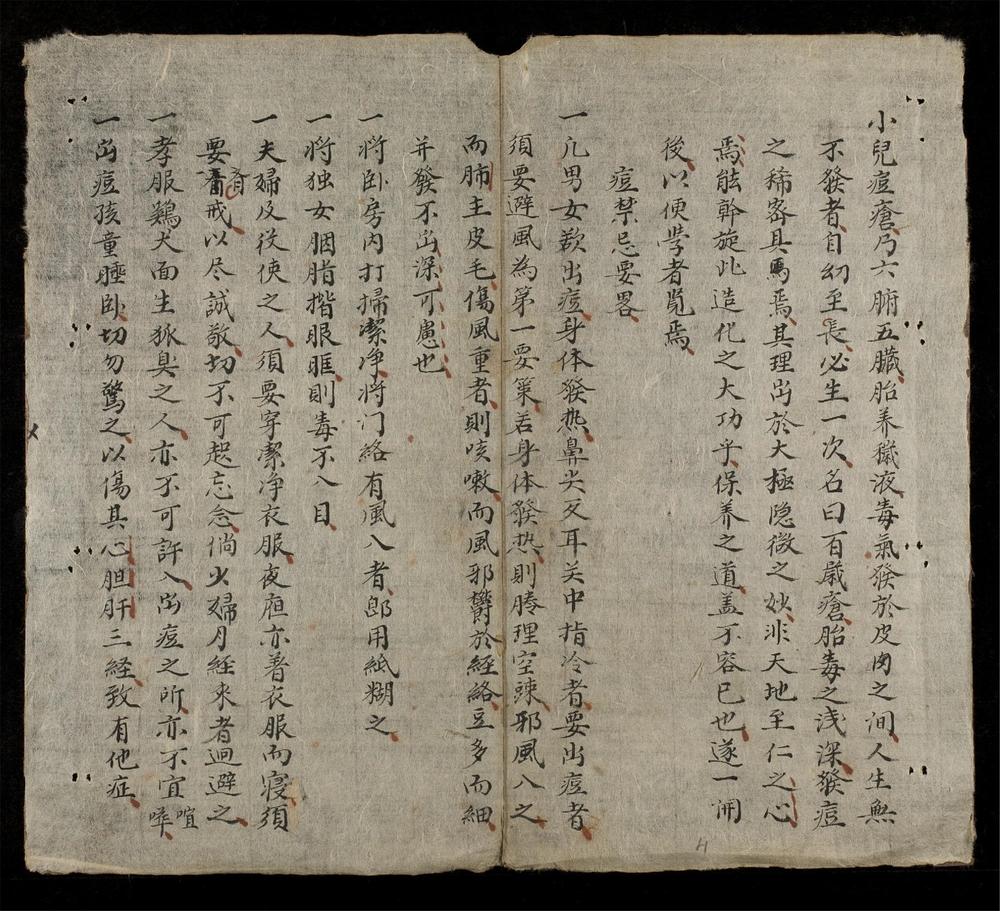 小兒痘瘡乃六腑五臟胎养穢液毒氣發於皮肉之间人生無
不發者自幼至長必生一次名曰百歲瘡胎毒之浅深發痘
之稀密具焉其理出於大極隐微之妙非天地至仁之心
焉能斡旋此造化之大功乎保养之道盖不容已也遂一開
後以便学者覧焉
痘禁忌要畧
一凢男女欲出痘身体發热鼻尖及耳关中指冷者要出痘者
須要避風為第一要策若身体發热則腠理空疎邪風入之
而肺主皮毛傷風重者則咳嗽而風邪欝於経絡豆多而細
并發不出深可慮也
一将卧房内打掃潔净将门絡有風入者即用紙糊之
一将独女胭脂揩眼眶則毒不入目
一夫婦及役使之人須要穿潔净衣服夜宿亦着衣服而寝須
要齋戒以尽誠敬切不可起忘念倘火婦月経来者迴避之
一孝服鷄犬面生狐臭之人亦不可許入出痘之所亦不宜喧嘩
一出痘孩童睡卧切勿驚之以傷其心胆肝三経致有他症